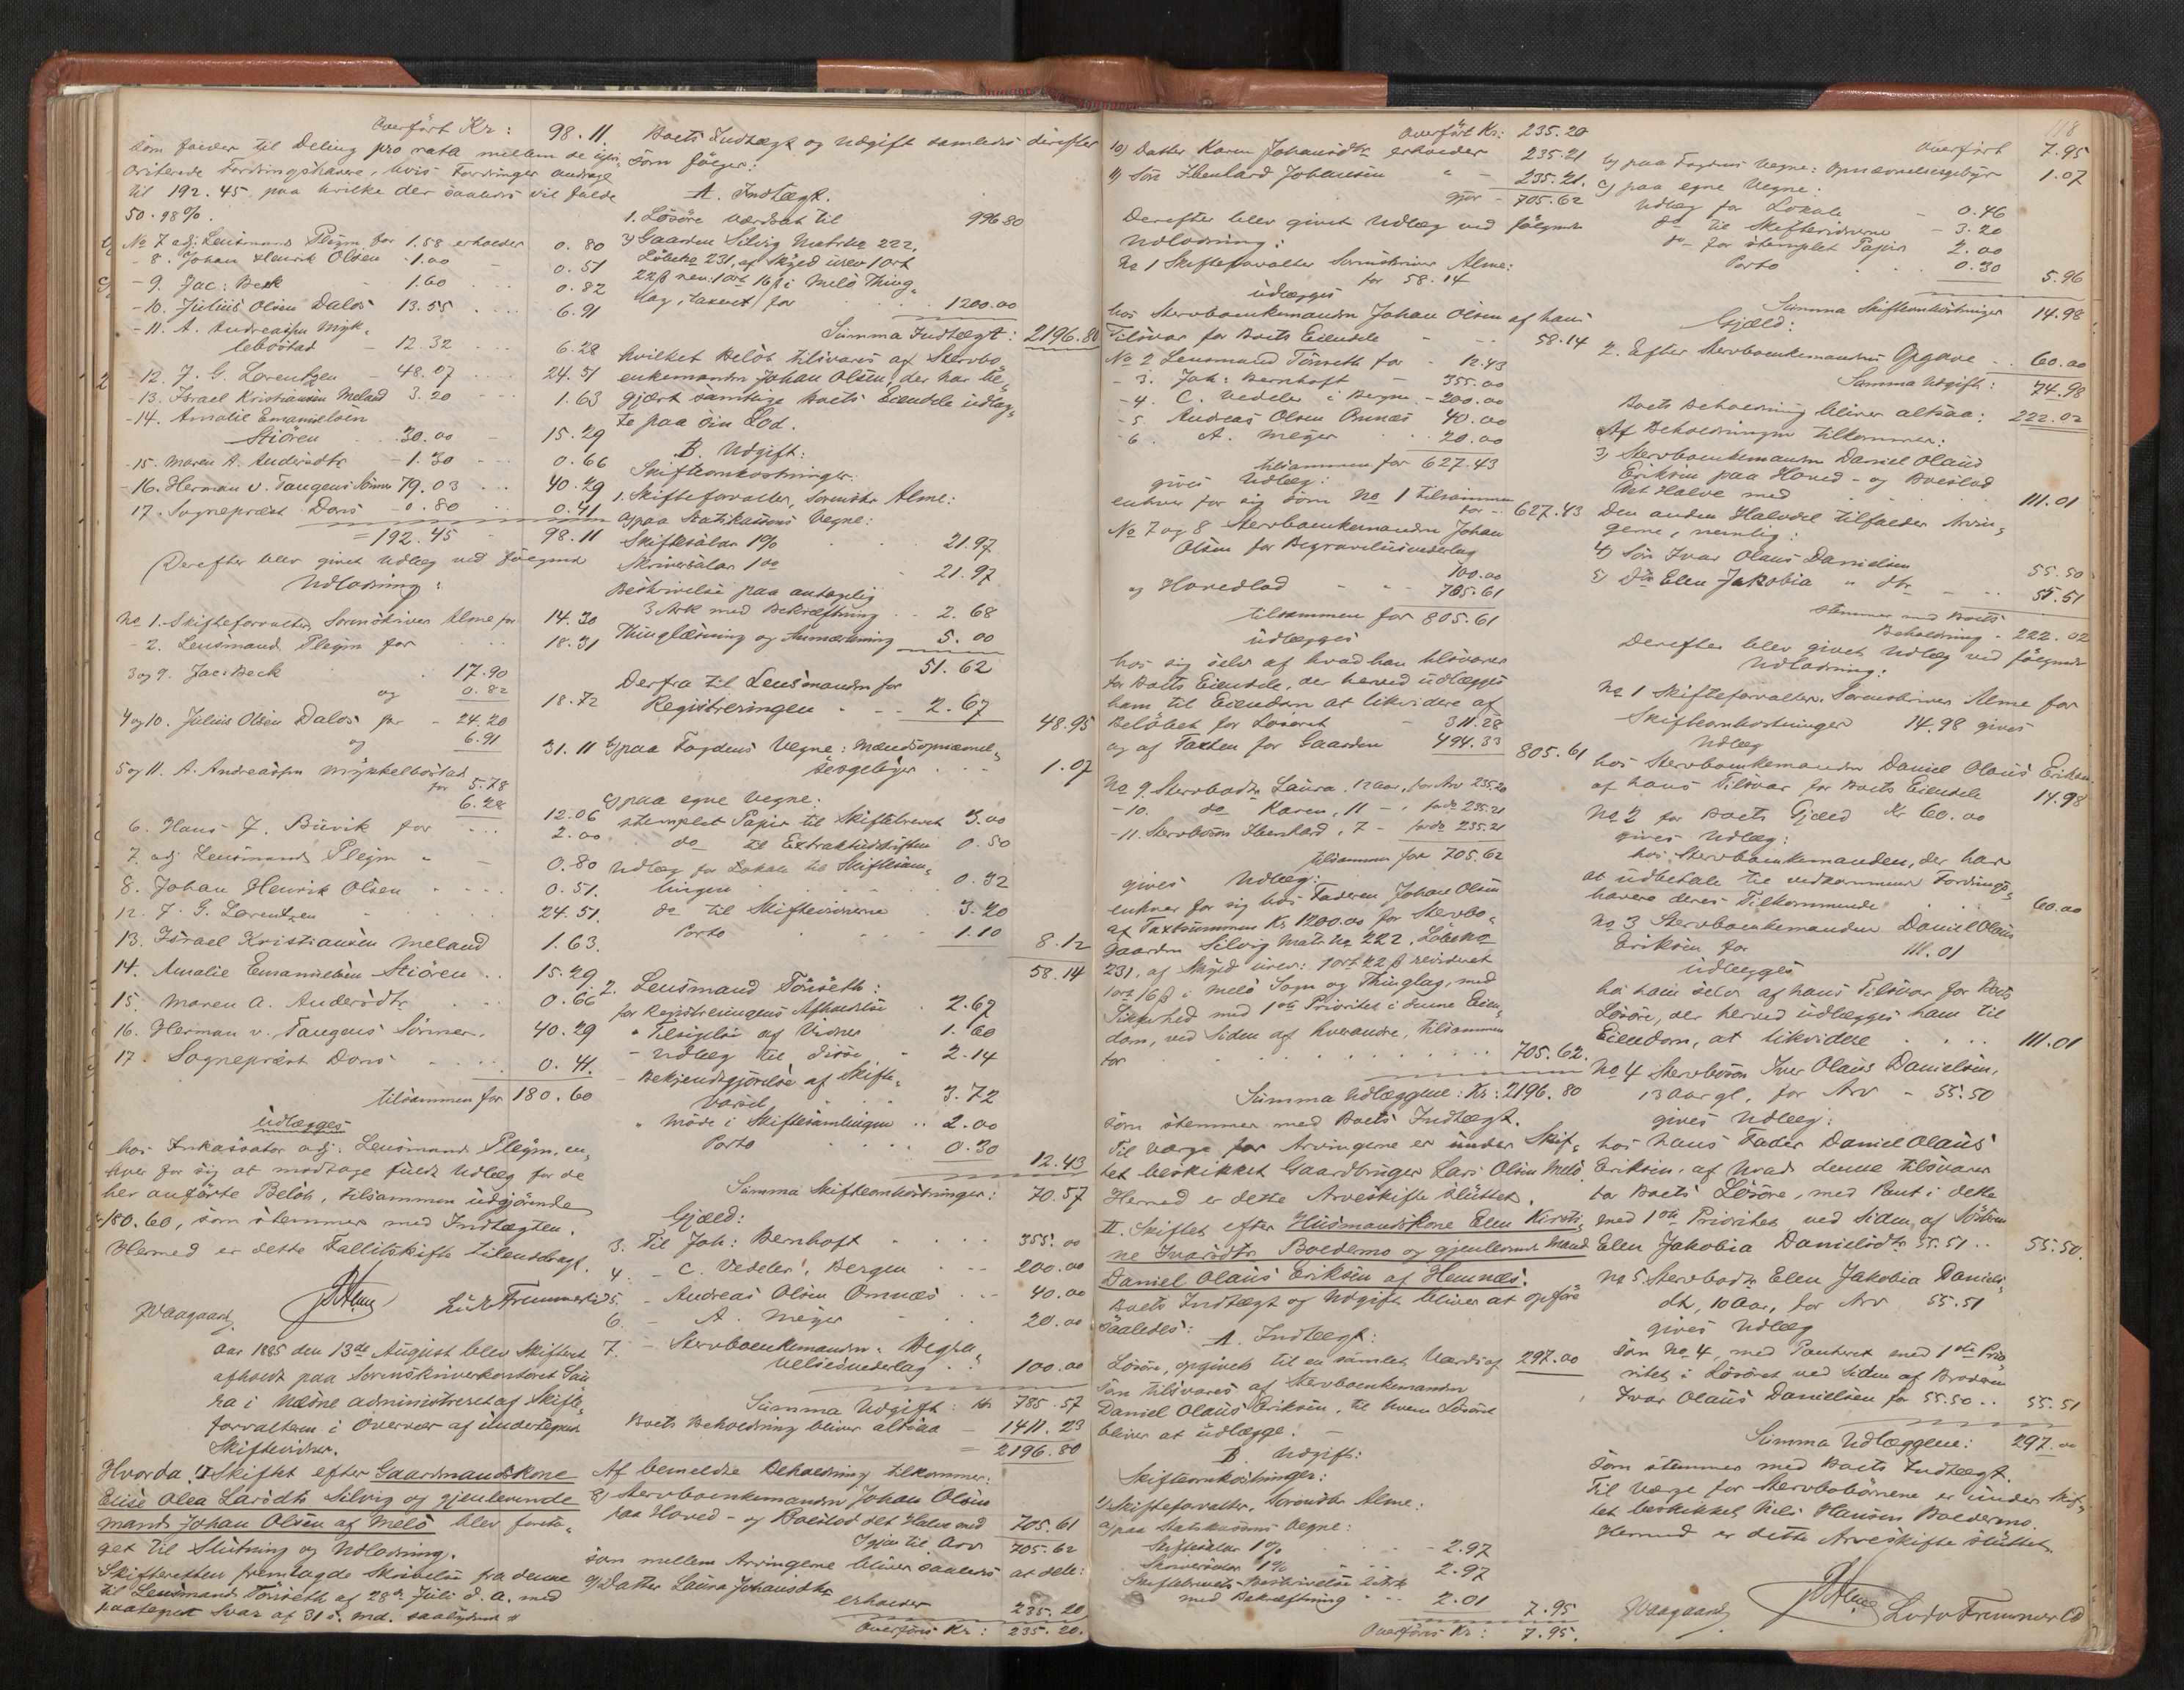 Overført Kr: 98.11
som falder til Deling pro rata mellem de upri-
oriterede Fordringshavere, hvis Fordringer andrage
til 192.45, paa hvilke der saaledes vil falde
50.98%.
No 7 adj. Lensmand Pleym for 1.58 erholder 0.80
- 8. Johan Henrik Olsen - 1.00 0.51
- 9. Jac: Beck 1.60 0.82
- 10. Julius Olsen Dalos 13.55 6.91
- 11. A. Andreassen Myk-
lebostad - 12.32 6.28
- 12. J. G. Lorentzen - 48.07 24.51
- 13. Israel Kristiansen Meland 3.20 1.63
- 14. Amalie Emanuelsen
Stiören 30.00 15.29
- 15. Maren A. Andersdtr - 1.30 0.66
- 16. Herman v. Tangens Sönner 79.03 40.29
17. Sognepræst Dons - 0.80 0.41
= 192.45 - 98.11
Derefter blev givet Udlæg ved følgende
Udlodning:
No 1. Skifteforvalter, Sorenskriver Alme for 14.30
- 2. Lensmand Pleym for 18.31
3 og 9. Jac: Beck 17.90
og 0.82
18.72
4 og 10. Julius Olsen Dalos for - 24.20
og 6.91
31.11
5 og 11. A. Andreassen Mykkelbostad
for 5.78
6.28
12.06
6. Hans J. Buvik for 2.00
7. adj Lensmand Pleym " 0.80
8. Johan Henrik Olsen 0.51.
12. J. G. Lorentzen 24.51.
13. Israel Kristiansen Meland 1.63.
14. Amalie Emanuelsen Stiören 15.29.
15. Maren A. Andersdtr. 0.66
16. Herman v. Tangens Sönner. 40.29
17. Sognepræst Dons 0.41.
tilsammen for 180.60
udlægges
hos Inkassator adj: Lensmand Pleym, en-
hver for sig at modtage fuldt Udlæg for de
her anførte Beløb, tilsammen udgjørende
180.60, som stemmer med Indtægten.
Hermed er dette Fallitskifte tilendebragt.
JWaagaard. Alme Ludv Fremmerlid
Aar 1885 den 13de August blev Skifteret
afholdt paa Sorenskriverkontoret Sau
ra i Næsne administreret af Skifte-
forvalteren i Overvær af undertegnede
Skiftevidner.
Hvorda: I Skiftet efter Gaardmandskone
Elise Olea Larsdtr Selvig og gjenlevende
Mand Johan Olsen af Melö blev foreta-
get til Slutning og Udlodning.
Skifteretten fremlagde Skrivelse fra denne
til Lensmand Tönseth af 28de Juli d. A. med
paategnet Svar af 31 s. Md. saalydende
Boets Indtægt og Udgift samledes derefter
som følger:
A. Indtægt.
1. Løsøre værdsat til 996.80
2) Gaarden Selvig Matr No 222,
Løbe No 231, af Skyld urev: 1 ort
22 ß rev: 1 ort 16 ß i Melö Thing-
lag, taxeret for 1200.00
Summa Indtægt: 2196.80
hvilket Beløb tilsvares af Stervbo-
enkemanden Johan Olsen, der har be-
gjært samtlige Boets Eiendele udlag-
te paa sin Lod.
B. Udgift:
Skifteomkostninger:
1. Skifteforvalter, Sorenskr Alme:
a) paa Statskassens Vegne:
Skiftesalær 1% 21.97
Skriversalær 1% 21.97
Beskrivelse paa antagelig
3 Ark med Bekræftning 2.68
Thinglæsning og Anmærkning 5.00
51.62
Derfra til Lensmanden for
Registreringen - 2.67
48.95
b) paa Fogdens Vegne: Mændsopnævnel-
sesgebyr 1.07
c) paa egne Vegne:
stemplet Papir til Skiftebrevet 3.00
do til Extraktudskriften 0.50
Udlæg for Lokale til Skiftesam-
lingen 0.32
do til Skiftevidnerne 3.20
Porto 1.10
8.12
58.14
2. Lensmand Tönseth:
for Registreringens Afholdelse 2.67
" Tilsigelse af Vidner 1.60
- Udlæg til disse 2.14
- Bekjendtgjørelse af Skifte-
varsel 3.72
" Möde i Skiftesamlingen 2.00
Porto 0.30
12.43
Summa Skifteomkostninger: 70.57
Gjæld:
3. Til Joh: Bernhoft 355.00
4. - C. Vedeler, Bergen 200.00
5. - Andreas Olsen Onnæs 40.00
6. - A. Meyer 20.00
7. - Stervboenkemanden: Begra-
velsesvederlag 100.00
Summa Udgift: Kr 785.57
Boets Beholdning bliver altsaa - 1411.23
= 2196.80
Af bemeldte Beholdning tilkommer:
8) Stervboenkemanden Johan Olsen
paa Hoved- og Boeslod det Halve med 705.61
Igjen til Arv 705.62
som mellem Arvingerne bliver saaledes at dele:
9) Datter Laura Johansdtr
erholder 235.20
Overføres Kr: 235.20.
Overført Kr: 235.20
10) Datter Karen Johansdtr erholder 235.21
11) Søn Ebenhard Johansen " - 235.21.
gjør - 705.62
Derefter blev givet Udlæg ved følgende
Udlodning:
No 1 Skifteforvalter Sorenskriver Alme:
for 58.14
udlægges
hos Stervboenkemanden Johan Olsen af hans
Tilsvar for Boets Eiendele 58.14
No 2 Lensmand Tönseth for - 12.43
- 3. Joh: Bernhoft - 355.00
- 4. C. Vedeler i Bergen - 200.00
- 5. Andreas Olsen Onnæs 40.00
- 6. A. Meyer 20.00
tilsammen for 627.43
gives Udlæg:
enhver for sig som No 1 tilsammen
for - 627.43
No 7 og 8 Stervboenkemanden Johan
Olsen for Begravelsesvederlag
100.00
og Hovedlod 705.61
tilsammen for 805.61
udlægges
hos sig selv af hvad han tilsvarer
for Boets Eiendele, der herved udlægges
ham til Eiendom at likvidere af
Beløbet for Løsøret - 311.28
og af Taxten for Gaarden 494.33
805.61
No 9. Stervbodtr Laura, 12 Aar, for Arv 235.20
- 10. do Karen, 11 - , for do 235.21
- 11. Stervbosön Ebenhard, 7 - for do 235.21
tilsammen for 705.62
gives Udlæg:
enhver for sig hos Faderen Johan Olsen
af Taxtsummen Kr 1200.00 for Stervbo-
gaarden Selvig Matr No 222, Løbe No
231, af Skyld urev: 1 ort 22 ß revideret
1 ort 16 ß i Melö Sogn og Thinglag, med
Sikkerhed med 1ste Prioritet i denne Eien-
dom, ved Siden af hverandre, tilsammen
for 705.62.
Summa Udlæggene: Kr: 2196.80
som stemmer med Boets Indtægt.
Til Værge for Arvingerne er under Skif-
tet beskikket Gaardbruger Lars Olsen Melö.
Hermed er dette Arveskifte sluttet.
II. Skiftet efter Husmandskone Elen Kirsti-
ne Ivarsdtr Boldermo og gjenlevende Mand
Daniel Olaus Eriksen af Hemnæs.
Boets Indtægt og Udgift bliver at opføre
saaledes:
A. Indtægt:
Løsøre, opgivet til en samlet Værdi af 297.00
som tilsvares af Stervboenkemanden
Daniel Olaus Eriksen, til hvem Løsøret
bliver at udlægge.
B. Udgift:
Skifteomkostninger:
1) Skifteforvalter, Sorenskr Alme:
a) paa Statskassens Vegne:
Skiftesalær 1% - 2.97
Skriversalær 1% 2.97
Skiftebrevets Beskrivelse 2 Ark
med Bekræftning 2.01
7.95
Overføres Kr: 7.95.
118
Overført 7.95
b) paa Fogdens Vegne: Opnævnelsesgebyr 1.07
c) paa egne Vegne:
Udlæg for Lokale - 0.46
do til Skiftevidnerne - 3.20
do for stemplet Papir 2.00
Porto 0.30
5.96
Summa Skifteomkostninger 14.98
Gjæld:
2. Efter Stervboenkemandens Opgave 60.00
Summa Udgift: 74.98
Boets Beholdning bliver altsaa: 222.02
Af Beholdningen tilkommer:
3) Stervboenkemanden Daniel Olaus
Eriksen paa Hoved- og Boeslod
det Halve med 111.01
Den anden Halvdel tilfalder Arvin-
gerne, nemlig:
4) Søn Ivar Olaus Danielsen 55.50
5) Dtr Elen Jakobia " dtr 55.51
stemmer med Boets
Beholdning - 222.02
Derefter blev givet Udlæg ved følgende
Udlodning:
No 1 Skifteforvalter, Sorenskriver Alme for
Skifteomkostninger 14.98 gives
Udlæg
hos Stervboenkemanden Daniel Olaus Eriksen
af hans Tilsvar for Boets Eiendele 14.98
No 2 for Boets Gjæld Kr 60.00
gives Udlæg:
hos Stervboenkemanden, der har
at udbetale til vedkommende Fordrings-
havere deres Tilkommende 60.00
No 3 Stervboenkemanden Daniel Olaus
Eriksen for 111.01
udlægges
hos ham selv af hans Tilsvar for Boets
Løsøre, der herved udlægges ham til
Eiendom, at likvidere 111.01
No 4 Stervbosön Iver Olaus Danielsen,
13 Aar gl, for Arv - 55.50
gives Udlæg:
hos hans Fader Daniel Olaus
Eriksen, af hvad denne tilsvarer
for Boets Løsøre, med Pant i dette
med 1ste Prioritet ved Siden af Søsteren
Elen Jakobia Danielsdtr 55.51 55.50.
No 5. Stervbodtr Elen Jakobia Daniels-
dtr, 10 Aar, for Arv 55.51
gives Udlæg
som No 4 med Panteret med 1ste Prio-
ritet i Løsøret ved Siden af Broderen
Ivar Olaus Danielsen for 55.50 55.51
Summa Udlæggene: 297.00
som stemmer med Boets Indtægt.
Til Værge for Stervbobörnene er under Skif-
tet beskikket Nils Hansen Boldermo.
Hermed er dette Arveskifte sluttet.
JWaagaard. Alme Ludv Fremmerlid